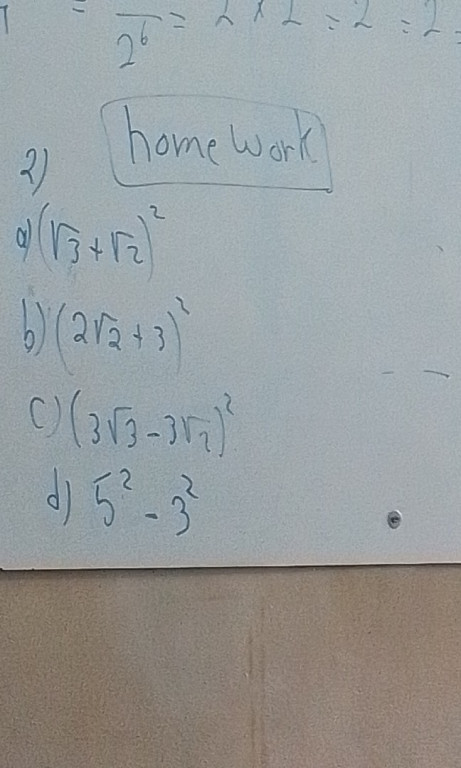 = 1/2⁶ = 2 × 2 = 2 = 2 =
home work
2)
a) (√3 + √2)²
b) (2√2 + 3)²
c) (3√3 - 3√2)²
d) 5² - 3²